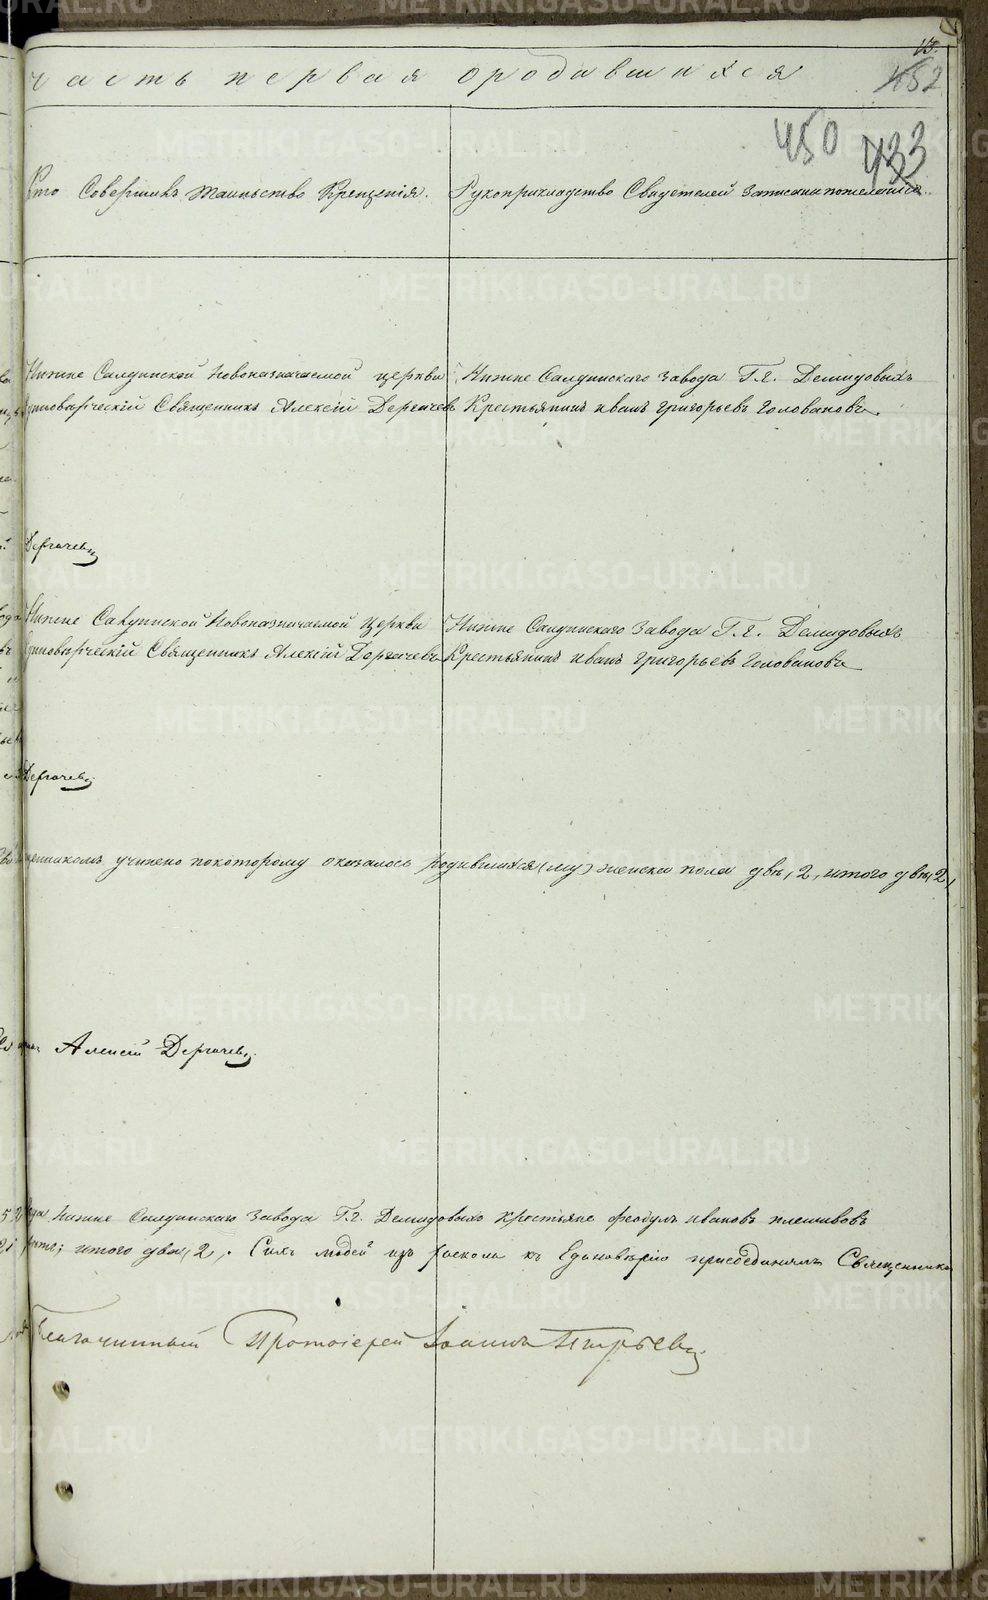 13.
452
часть первая ородившихся
450 433
Кто Совершилъ таинство Крещенія. Рукоприкладство Свидетелей Записи по желанію.
Нижне Салдинской Новоназначаемой церкви
Единоверческій Священникъ Алексій Дергачевъ
Нижне Салдинскаго Завода Г.г. Демидовыхъ
Крестьянинъ иванъ григорьевъ Головановъ.
Дергачевъ
Нижне Салдинской Новоназначаемой Церкви
Единоверческій Священникъ Алексій Дергачевъ
Нижне Салдинскаго Завода Г.г. Демидовыхъ
Крестьянинъ иванъ григорьевъ Головановъ
Дергачевъ
щенникомъ учинено покоторому оказалось родившихся (му) женска пола двѣ, 2, итого двѣ, 2,
Алексій Дергачевъ.
года Нижне Салдинскаго Завода Г.г. Демидовыхъ крестьяне феодулъ ивановъ плешивовъ
итого два, 2. Сихъ людей изъ раскола къ Единоверію присоединилъ Священникъ
Благочинный Протоіерей Іоаннъ
METRIKI.GASO-URAL.RU